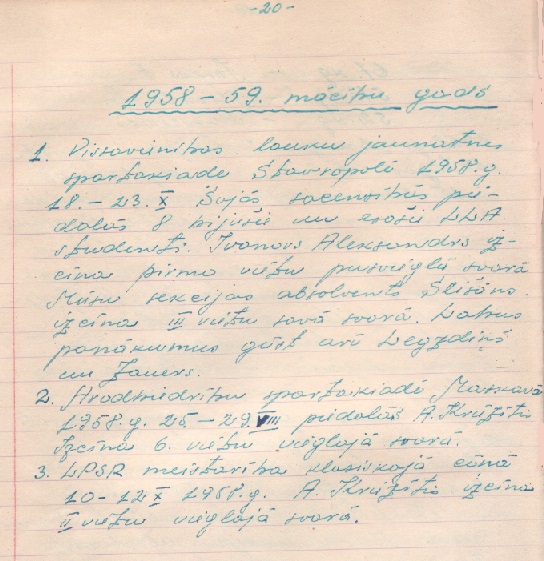 -20-
1958 – 59. mācību gadā
1. Vissavienības lauku jaunatnes
spartakiade Stavropolē 1958.g.
18.– 23. X Šajās sacensībās pie-
dalās 8 bijušie un esošie LLA
studenti. Ivanovs Aleksandrs iz-
cīna pirmo vietu pusvieglā svarā
Mūsu sekcijas absolvents
izcīna III vietu savā svarā. Labus
panākumus gūst arī Legzdiņš
un Zauers.
2. Arodbiedrību spartakiadē Maskavā
1958.g. 25 – 29. VIII piedalās A.
Izcīna 6. vietu vieglajā svarā.
3. LPSR meistarība klasiskajā cīņā
10 - 12 X 1958.g. A. izcīna
II vietu vieglajā svarā.